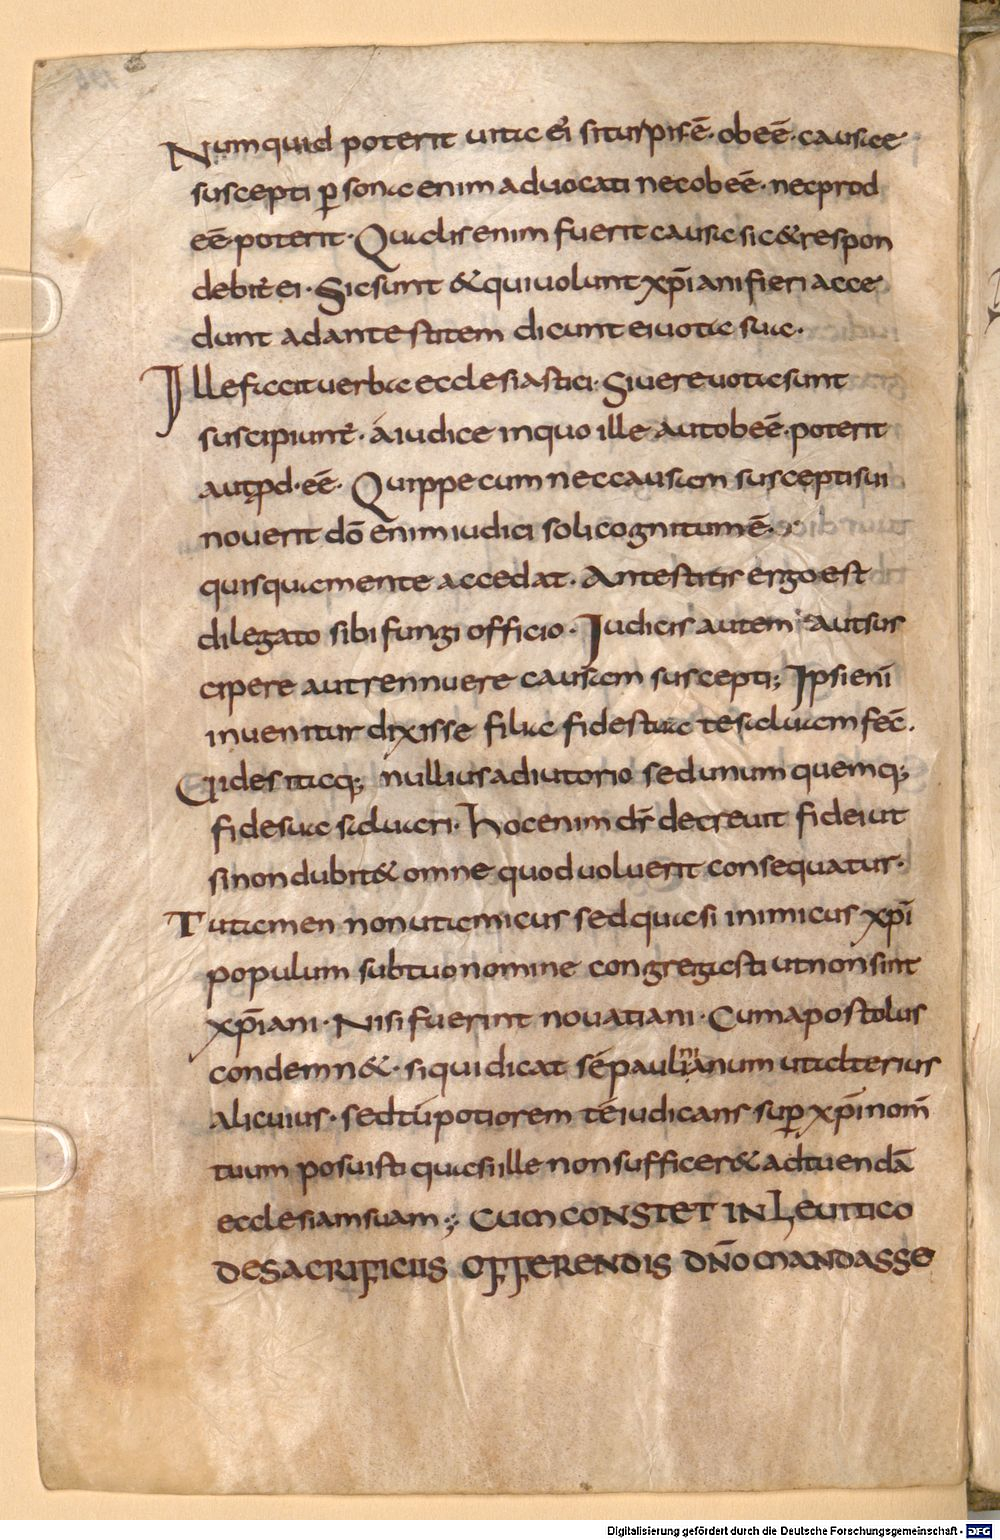 Numquid poterit uita ei si turpis ē· obeē· causae
suscepti ꝑsonae enim aduocati nec obeē· nec prod
eē· poterit· Qualis enim fuerit causa sic & respon
debit ei· Sic sunt & qui uolunt xp̄iani fieri acce
dunt ad antestitem dicunt ei uota sua·
Ille facit uerba ecclesiastici· Si uere uota sunt
suscipiunt· a iudice in quo ille aut obeē· poterit
aut ꝓd·eē· Quippe cum nec causam suscepti sui
nouerit dō enim iudici soli cognitum ē·
quis qua mente accedat· Antestitis ergo est
dilegato sibi fungi officio· Iudicis autem aut sus
cipere aut rennuere causam suscepti; Ipsi enī
inuenitur dixisse filia fides tua te saluam fec̄·
Quid est itaq; nullius adiutorio sed unum quemq;
fide sua saluari· Hoc enim dr̄ decreuit fidei ut
si non dubit& omne quod uoluerit consequatur·
Tu tamen non ut amicus sed quasi inimicus xp̄i
populum sub tuo nomine congregasti ut non sint
xp̄iani· Nisi fuerint nouatiani· Cum apostolus
condemn&· si qui dicat sé paulianum ut alterius
alicuius· sed tū potiorem té iudicans suꝑ xp̄i nom̄
tuum posuisti quasi ille non sufficer& ad tuendā
ecclesiam suam; CUM CONSTET IN LEUITICO
DE SACRIFICIIS OFFERENDIS DN̄O MANDASSE
Digitalisierung gefördert durch die Deutsche Forschungsgemeinschaft - DFG